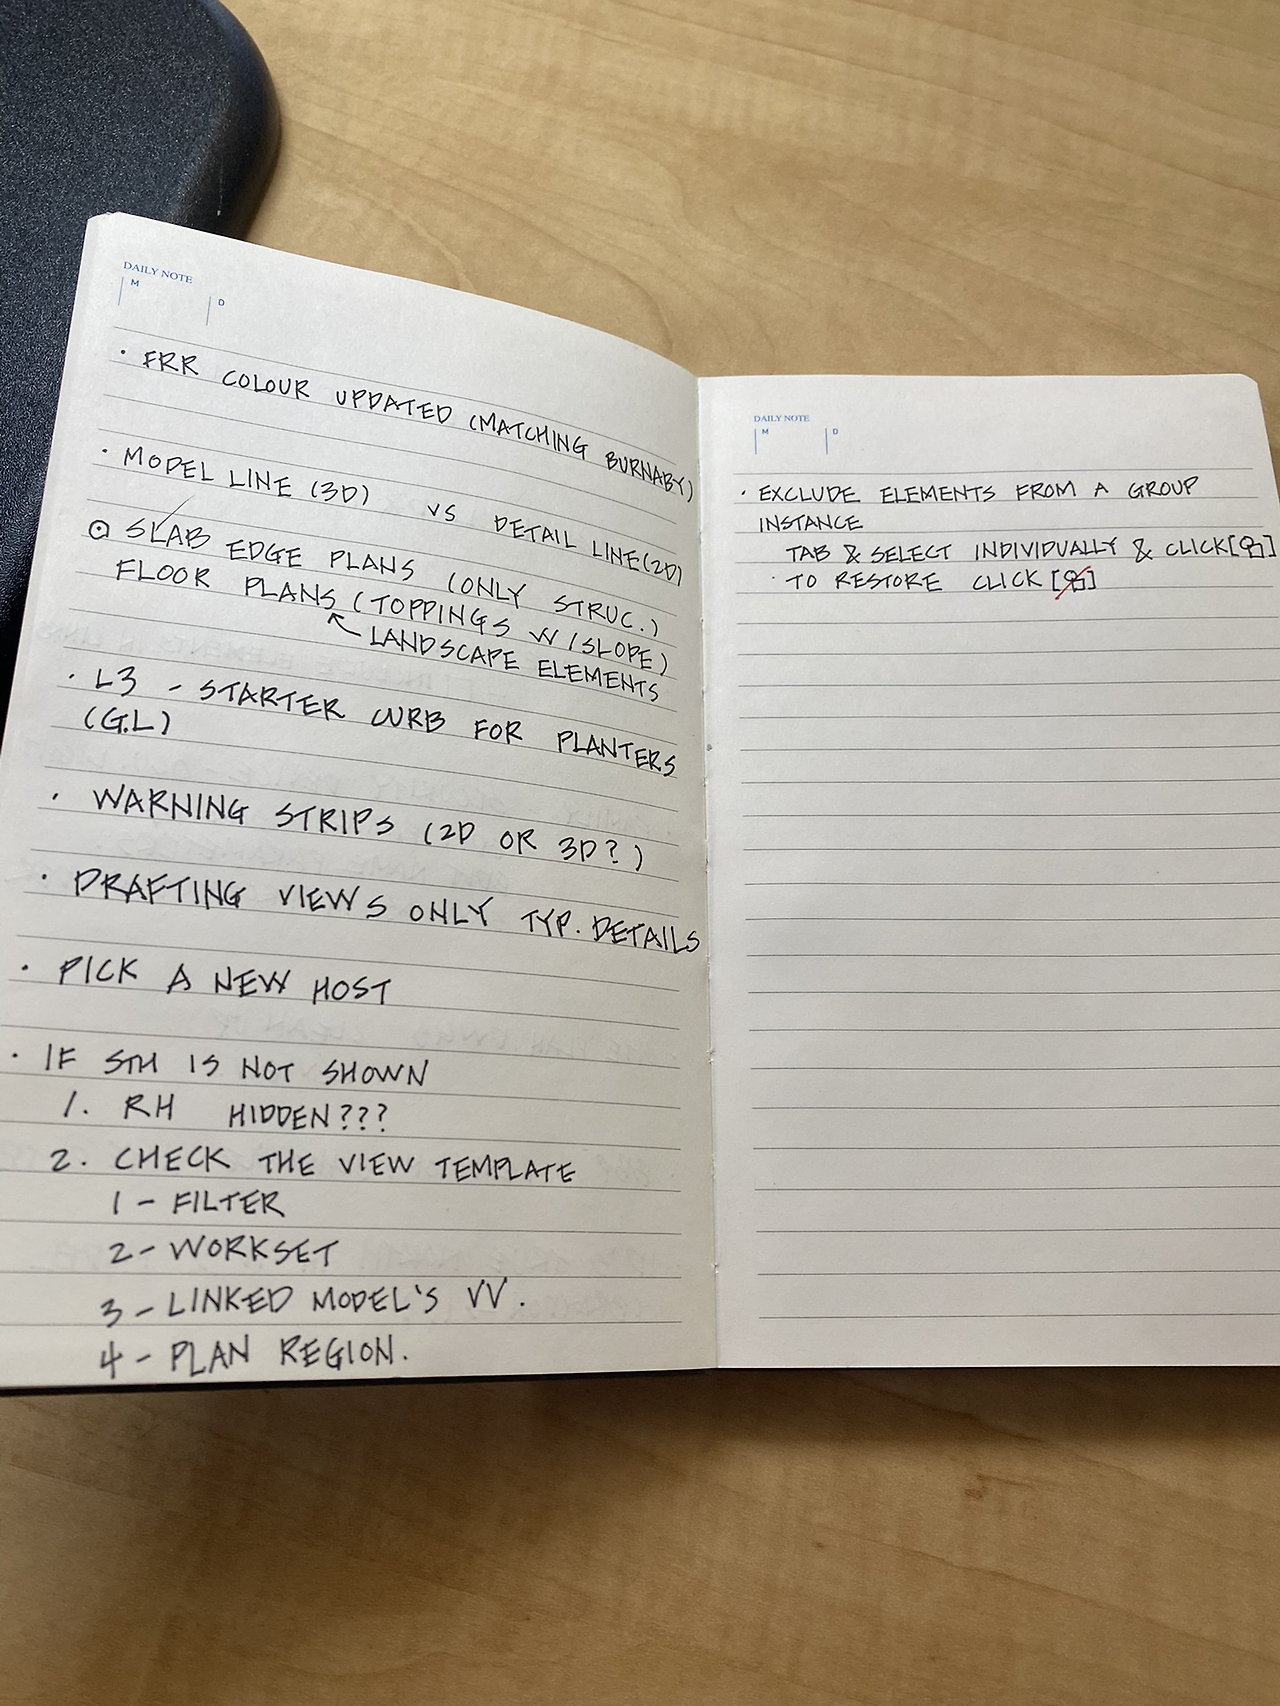 DAILY NOTE
M D
· FRR COLOUR UPDATED (MATCHING BURNABY)
· MODEL LINE (3D) VS DETAIL LINE (2D)
⊙ SLAB EDGE PLANS (ONLY STRUC.)
FLOOR PLANS (TOPPINGS W/SLOPE)
LANDSCAPE ELEMENTS
· L3 - STARTER CURB FOR PLANTERS
(G.L)
· WARNING STRIPS (2D OR 3D?)
· DRAFTING VIEWS ONLY TYP. DETAILS
· PICK A NEW HOST
· IF STH IS NOT SHOWN
1. RH HIDDEN???
2. CHECK THE VIEW TEMPLATE
1 - FILTER
2 - WORKSET
3 - LINKED MODEL'S VV.
4 - PLAN REGION.
DAILY NOTE
M D
· EXCLUDE ELEMENTS FROM A GROUP
INSTANCE
TAB & SELECT INDIVIDUALLY & CLICK []
· TO RESTORE CLICK []